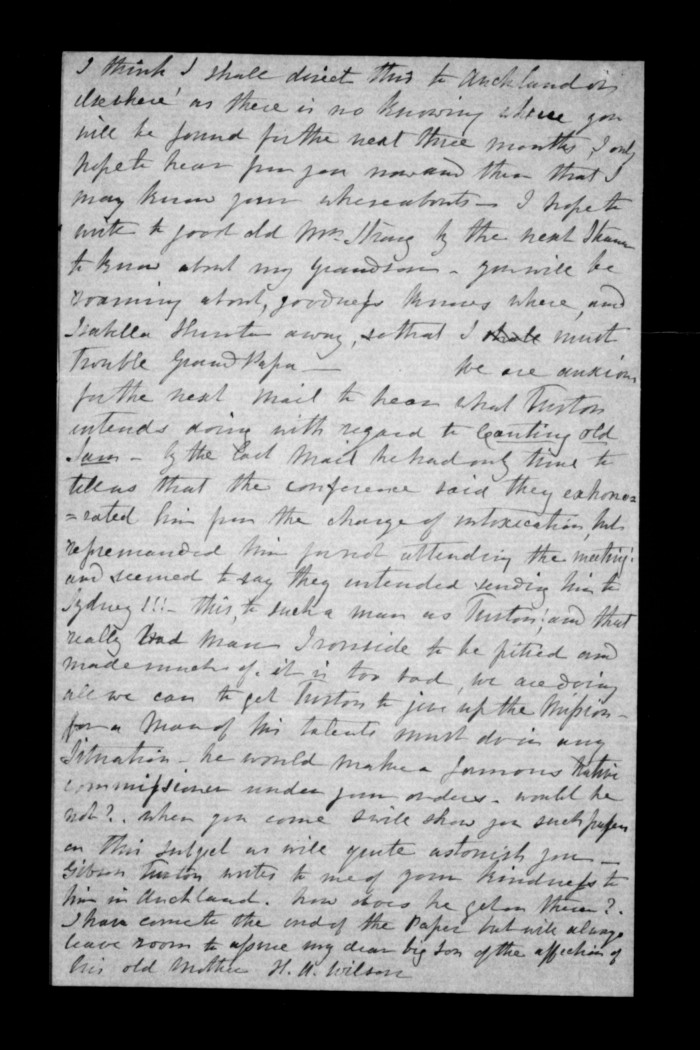 I think I shall direct this to Auckland or
elsewhere' as there is no knowing where you
will be found for the next three months, I only
hope to hear from you now and then that I
may know your whereabouts - I hope to
write to good old Mrs. Strang by the next Steamer
to know about my Grandson - you will be
roaming about, goodness knows where, and
Isabella Hunter away, so that I shall must
trouble GrandPapa - We are anxious
for the next Mail to hear what Turton
intends doing with regard to Canting old
Sam - by the last Mail he had only time to
tell us that the conference said they exhone=
=rated him from the charge of intoxication, but
repremanded him for not attending the meeting:
and seemed to say they intended sending him to
Sydney!!! - this, to such a man as Turton; and that
really bad Man Ironside to be pitied and
made much of, it is too bad, we are doing
all we can to get Turton to give up the Mission -
for a Man of his talents must do in any
Situation - he would make a famous Native
commissioner under your orders - would he
not?. when you come I will show you such papers
on this subject as will quite astonish you -
Gibson Turton writes to me of your kindness to
him in Auckland. how does he get on there?.
I have come to the end of the Paper but will always
leave room to assure my dear big Son of the affection of
his old Mother H. A. Wilson